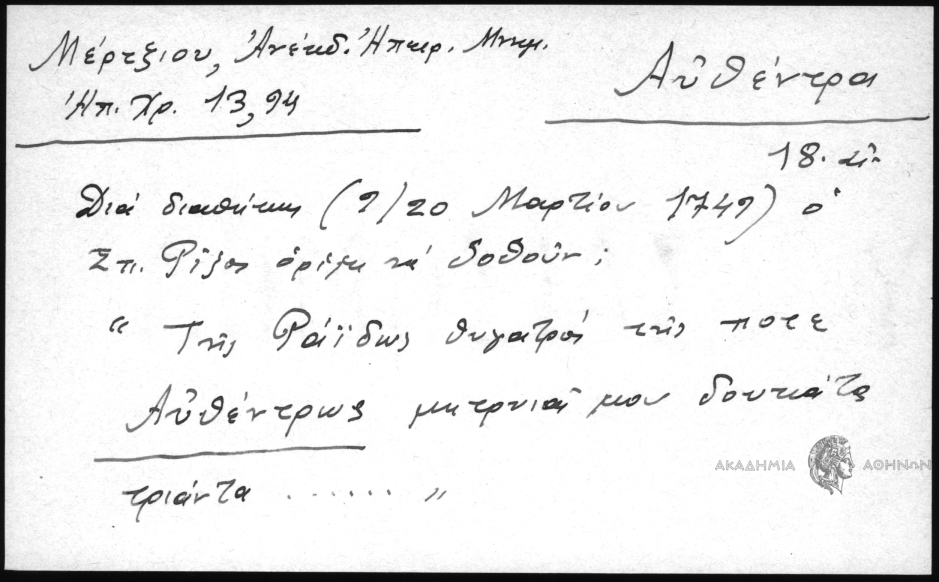 Μέρτζιου, Ἀνέκδ. Ἠπειρ. Μνημ.
Ἠπ. Χρ. 13, 94
Αὐθέντρα
18. αἰ.
Διά διαθήκης (9/20 Μαρτίου 1749) ὁ
Σπ. Ρίζος ὁρίζει νά δοθοῦν:
“ Τῆς Ράϊδως θυγατρός τῆς ποτε
Αὐθέντρως μητρυιᾶς μου δουκάτα
τριάντα ....... „
ΑΚΑΔΗΜΙΑ ΑΘΗΝΩΝ